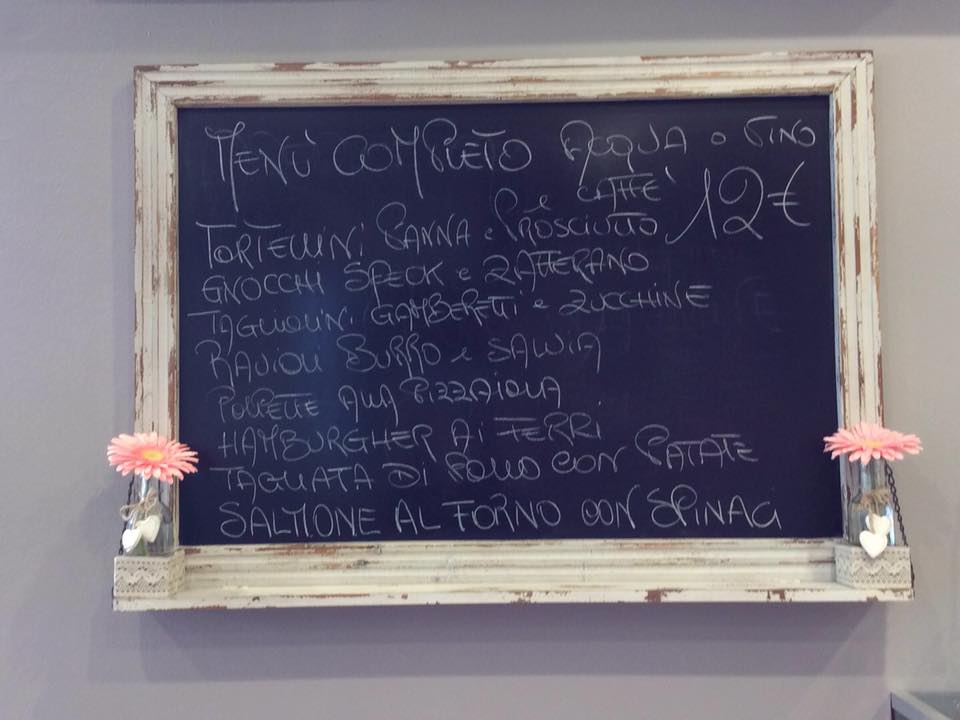 MENÙ COMPLETO ACQUA O VINO
E CAFFÈ
12€
TORTELLINI PANNA E PROSCIUTTO
GNOCCHI SPECK E ZAFFERANO
TAGLIOLINI GAMBERETTI E ZUCCHINE
RAVIOLI BURRO E SALVIA
POLPETTE ALLA PIZZAIOLA
HAMBURGHER AI FERRI
TAGLIATA DI POLLO CON PATATE
SALMONE AL FORNO CON SPINACI